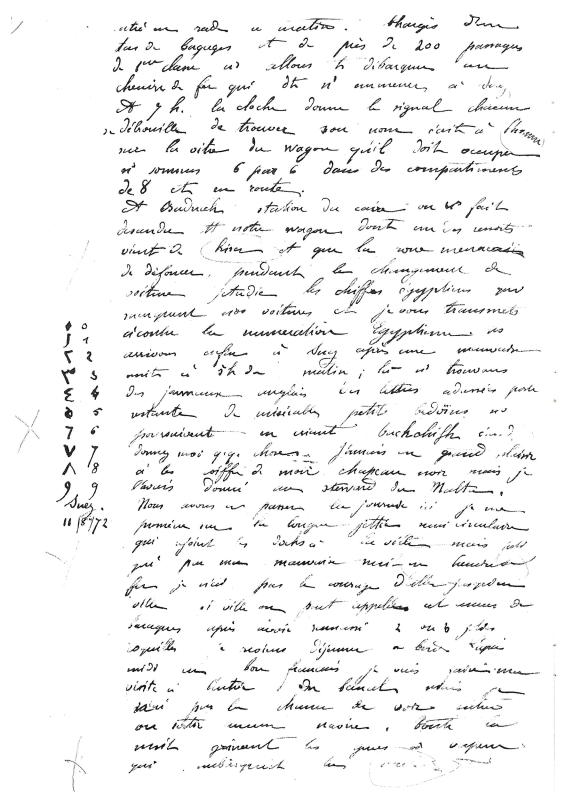 en rade ce matin. Chargés d'un
tas de bagages et de près de 200 passagers
de 1ère classe ns allons débarquer un
chemin de fer qui dt ns emmener à Suez
A 7 h. la cloche donne le signal chacun
se débrouille de trouver son nom écrit à
sur la vitre du wagon qu'il doit occuper
ns sommes 6 par 6 dans des compartiments
de 8 et en route.
A station du Caire on ns fait
descendre notre wagon dont un des ressorts
vient de briser et que la roue menaçait
de défoncer. pendant le changement de
voiture j'étudie les chiffres égyptiens qui
marquent nos voitures et je vous transmets
ci contre la numération Egyptienne. ns
arrivons enfin à Suez après une mauvaise
nuit à 5h du matin ; là ns trouvons
des journaux anglais des lettres adressées poste
restante de misérables petits bédouins ns
poursuivent en criant backchich
donnez moi q.q. chose. J'aurais eu grand plaisir
à les coiffer de mon chapeau noir mais je
l'avais donné au steward du Malta.
Nous avons à passer la journée ici je me
promène sur la longue jettée semi circulaire
qui joint les docks à la ville mais
par un mauvais
je n'ai pas le courage d'aller jusqu'en
ville si ville on peut appeller cet amas de
baraques après avoir ramassé 2 ou 3 jolies
coquilles je reviens déjeuner à bord. après
midi un bon français je vais faire une
visite à l'entrée du canal mais je
n'ai pas la chance de voir entrer
ou sortir aucun navire. Toute la
nuit les grues à vapeur
qui les
0 0
1 1
2 2
3 3
4 4
5 5
6 6
7 7
8 8
9 9
Suez.
11/8/72